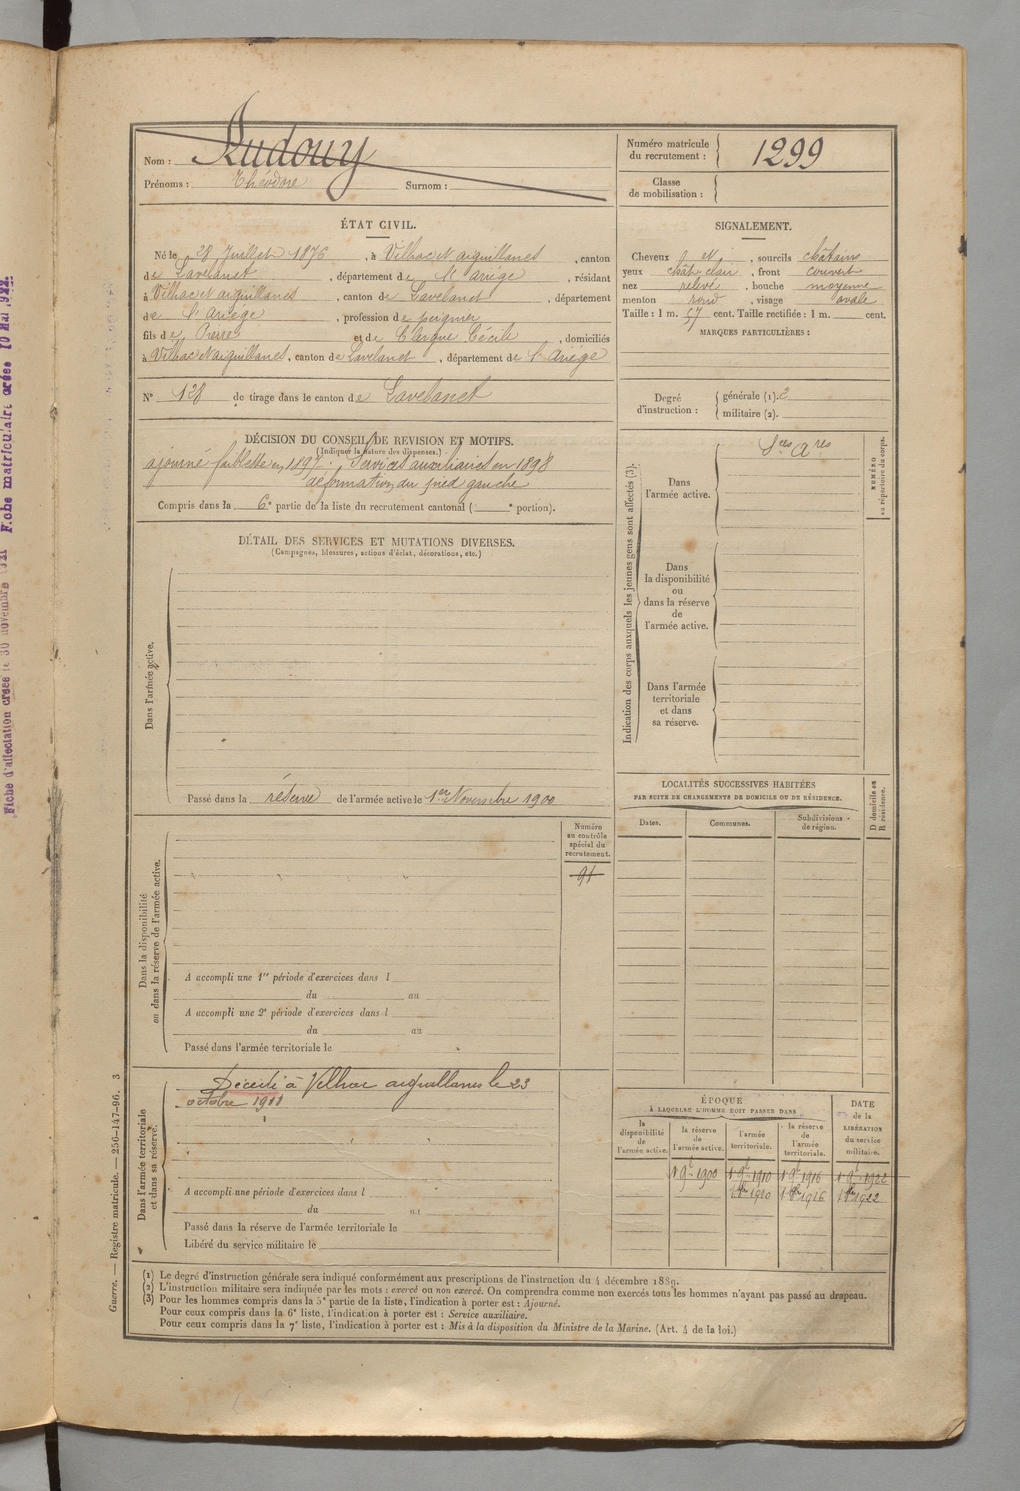 Nom : Rudouy
Prénoms : Théodore Surnom :
Numéro matricule du recrutement : 1299
Classe de mobilisation :
ÉTAT CIVIL.
Né le 28 Juillet 1876, à Vilhac et aiguillanes, canton
de Lavelanet, département de l'Ariège, résidant
à Vilhac et aiguillanes, canton de Lavelanet, département
de l'Ariège, profession de peigneur
fils de Pierre et de Clergue Cécile, domiciliés
à Vilhac et aiguillanes, canton de Lavelanet, département de l'Ariège
N° 128 de tirage dans le canton de Lavelanet
SIGNALEMENT.
Cheveux et, sourcils châtains
yeux chât clair, front couvert
nez relevé, bouche moyenne
menton rond, visage ovale
Taille : 1 m. 57 cent. Taille rectifiée : 1 m. cent.
MARQUES PARTICULIÈRES :
Degré d'instruction : générale (1). 2
militaire (2).
DÉCISION DU CONSEIL DE REVISION ET MOTIFS.
(Indiquer la nature des dispenses.)
ajourné faiblesse en 1897. Services auxiliaires en 1898
déformation du pied gauche
Compris dans la 6e partie de la liste du recrutement cantonal ( e portion).
DÉTAIL DES SERVICES ET MUTATIONS DIVERSES.
(Campagnes, blessures, actions d'éclat, décorations, etc.)
Dans l'armée active.
Passé dans la réserve de l'armée active le 1er Novembre 1900
Indication des corps auxquels les jeunes gens sont affectés (3).
Sces Ares
Dans l'armée active.
Dans la disponibilité ou dans la réserve de l'armée active.
Dans l'armée territoriale et dans sa réserve.
NUMÉRO au répertoire du corps.
LOCALITÉS SUCCESSIVES HABITÉES
PAR SUITE DE CHANGEMENTS DE DOMICILE OU DE RÉSIDENCE.
Dates. Communes. Subdivisions de région.
D domicile ou R résidence.
Numéro au contrôle spécial du recrutement.
91
Dans la disponibilité ou dans la réserve de l'armée active.
A accompli une 1re période d'exercices dans l
du au
A accompli une 2e période d'exercices dans l
du au
Passé dans l'armée territoriale le
Dans l'armée territoriale et dans sa réserve.
Décédé à Vilhac aiguillanes le 23
octobre 1911
A accompli une période d'exercices dans l
du au
Passé dans la réserve de l'armée territoriale le
Libéré du service militaire le
ÉPOQUE
À LAQUELLE L'HOMME DOIT PASSER DANS
la disponibilité de l'armée active.
la réserve de l'armée active.
l'armée territoriale.
la réserve de l'armée territoriale.
DATE de la LIBÉRATION du service militaire.
1 9e 1900 1 9e 1910 1 9e 1916 1 9e 1922
1 8e 1910 1 8e 1916 1 8e 1922
(1) Le degré d'instruction générale sera indiqué conformément aux prescriptions de l'instruction du 4 décembre 1889.
(2) L'instruction militaire sera indiquée par les mots : exercé ou non exercé. On comprendra comme non exercés tous les hommes n'ayant pas passé au drapeau.
(3) Pour les hommes compris dans la 5e partie de la liste, l'indication à porter est : Ajourné.
Pour ceux compris dans la 6e liste, l'indication à porter est : Service auxiliaire.
Pour ceux compris dans la 7e liste, l'indication à porter est : Mis à la disposition du Ministre de la Marine. (Art. 4 de la loi.)
Guerre. — Registre matricule. — 256-147-96. 3
Fiche d'affectation créée le 30 novembre 1921 Fiche matriculaire créée 10 Mai 1922.